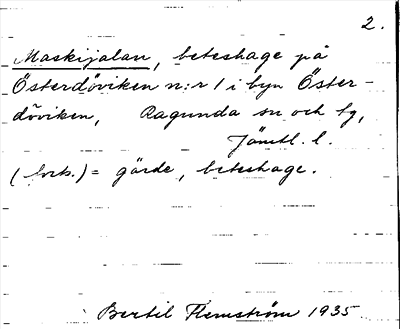 2.
Maskijalan, beteshage på
Österdöviken n:r 1 i byn Öster-
döviken, Ragunda sn och tg,
Jämtl. l.
(bets.) = gärde, beteshage.
Bertil Flemström 1935